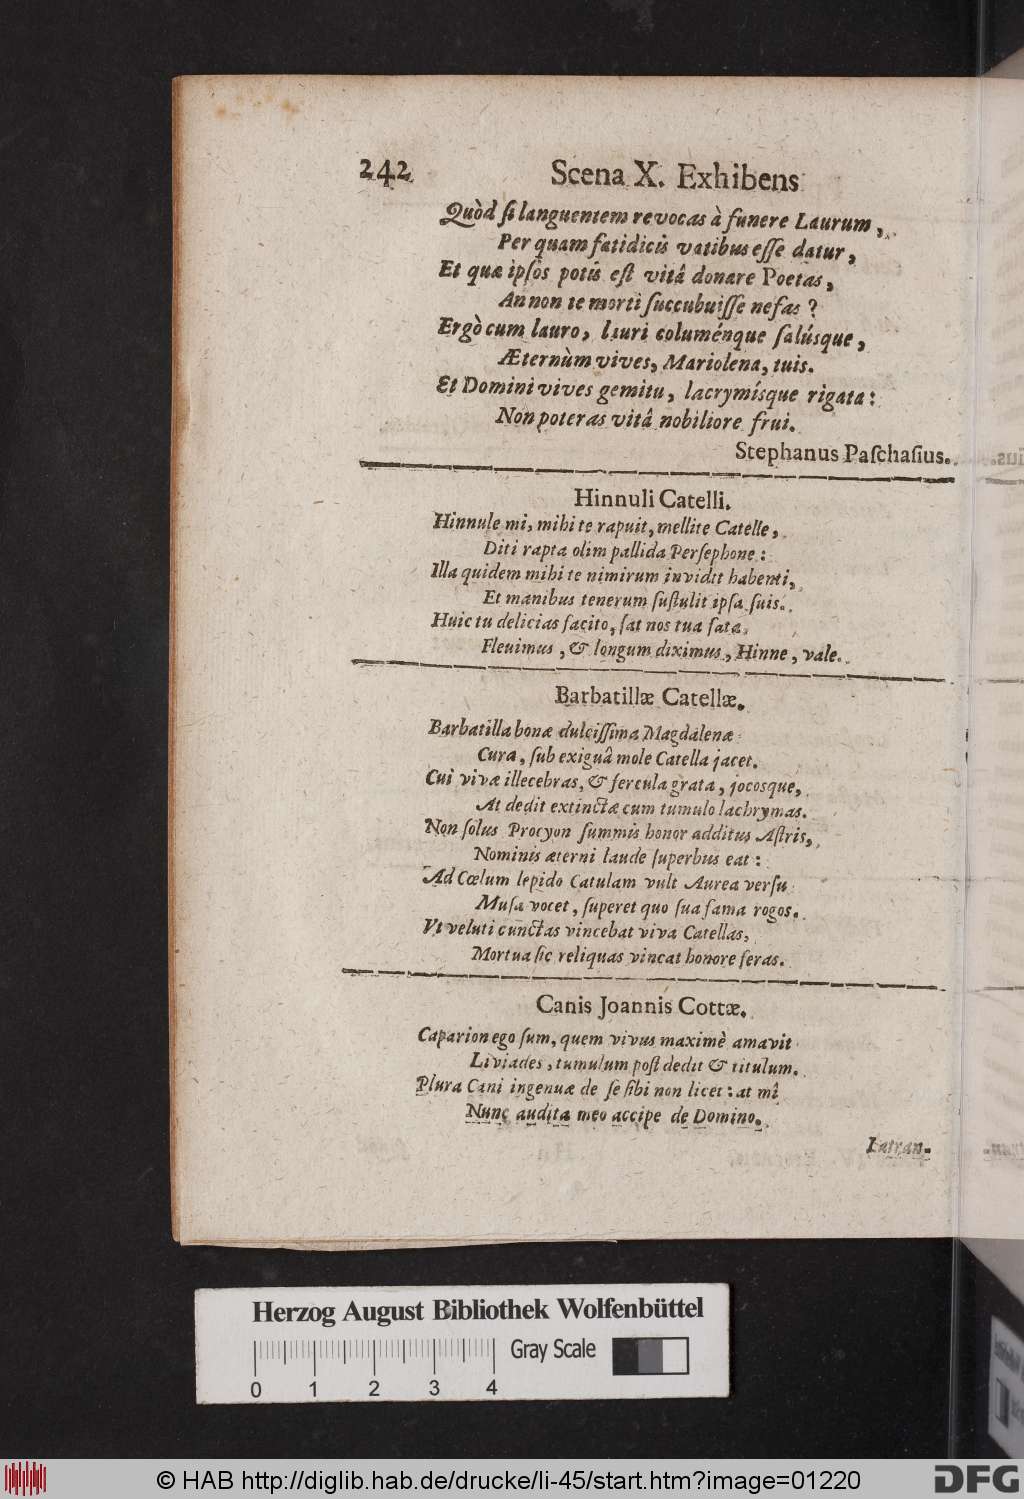 242 Scena X. Exhibens
Quòd ſi languentem revocas à funere Laurum,
Per quam fatidicis vatibus eſſe datur,
Et quæ ipſos potis eſt vitâ donare Poetas,
An non te morti ſuccubuiſſe nefas?
Ergò cum lauro, lauri columénque ſalúsque,
Æternùm vives, Mariolena, tuis.
Et Domini vives gemitu, lacrymísque rigata:
Non poteras vitâ nobiliore frui.
Stephanus Paſchaſius.
Hinnuli Catelli.
Hinnule mi, mihi te rapuit, mellite Catelle,
Diti rapta olim pallida Perſephone:
Illa quidem mihi te nimirum invidit habenti,
Et manibus tenerum ſuſtulit ipſa ſuis.
Huic tu delicias facito, ſat nos tua fata
Flevimus, & longum diximus, Hinne, vale.
Barbatillæ Catellæ.
Barbatilla bonæ dulciſſima Magdalenæ
Cura, ſub exiguâ mole Catella jacet.
Cui vivæ illecebras, & fercula grata, jocosque,
At dedit extinctæ cum tumulo lachrymas.
Non ſolus Procyon ſummis honor additus Aſtris,
Nominis æterni laude ſuperbus eat:
Ad Cœlum lepido Catulam vult Aurea verſu
Muſa vocet, ſuperet quo ſua fama rogos.
Vt veluti cunctas vincebat viva Catellas,
Mortua ſic reliquas vincat honore feras.
Canis Joannis Cottæ.
Caparion ego ſum, quem vivus maximè amavit
Liviades, tumulum poſt dedit & titulum.
Plura Cani ingenuæ de ſe ſibi non licet: at mî
Nunc audita meo accipe de Domino.
Latran-
Herzog August Bibliothek Wolfenbüttel
Gray Scale
0 1 2 3 4
© HAB http://diglib.hab.de/drucke/li-45/start.htm?image=01220
DFG